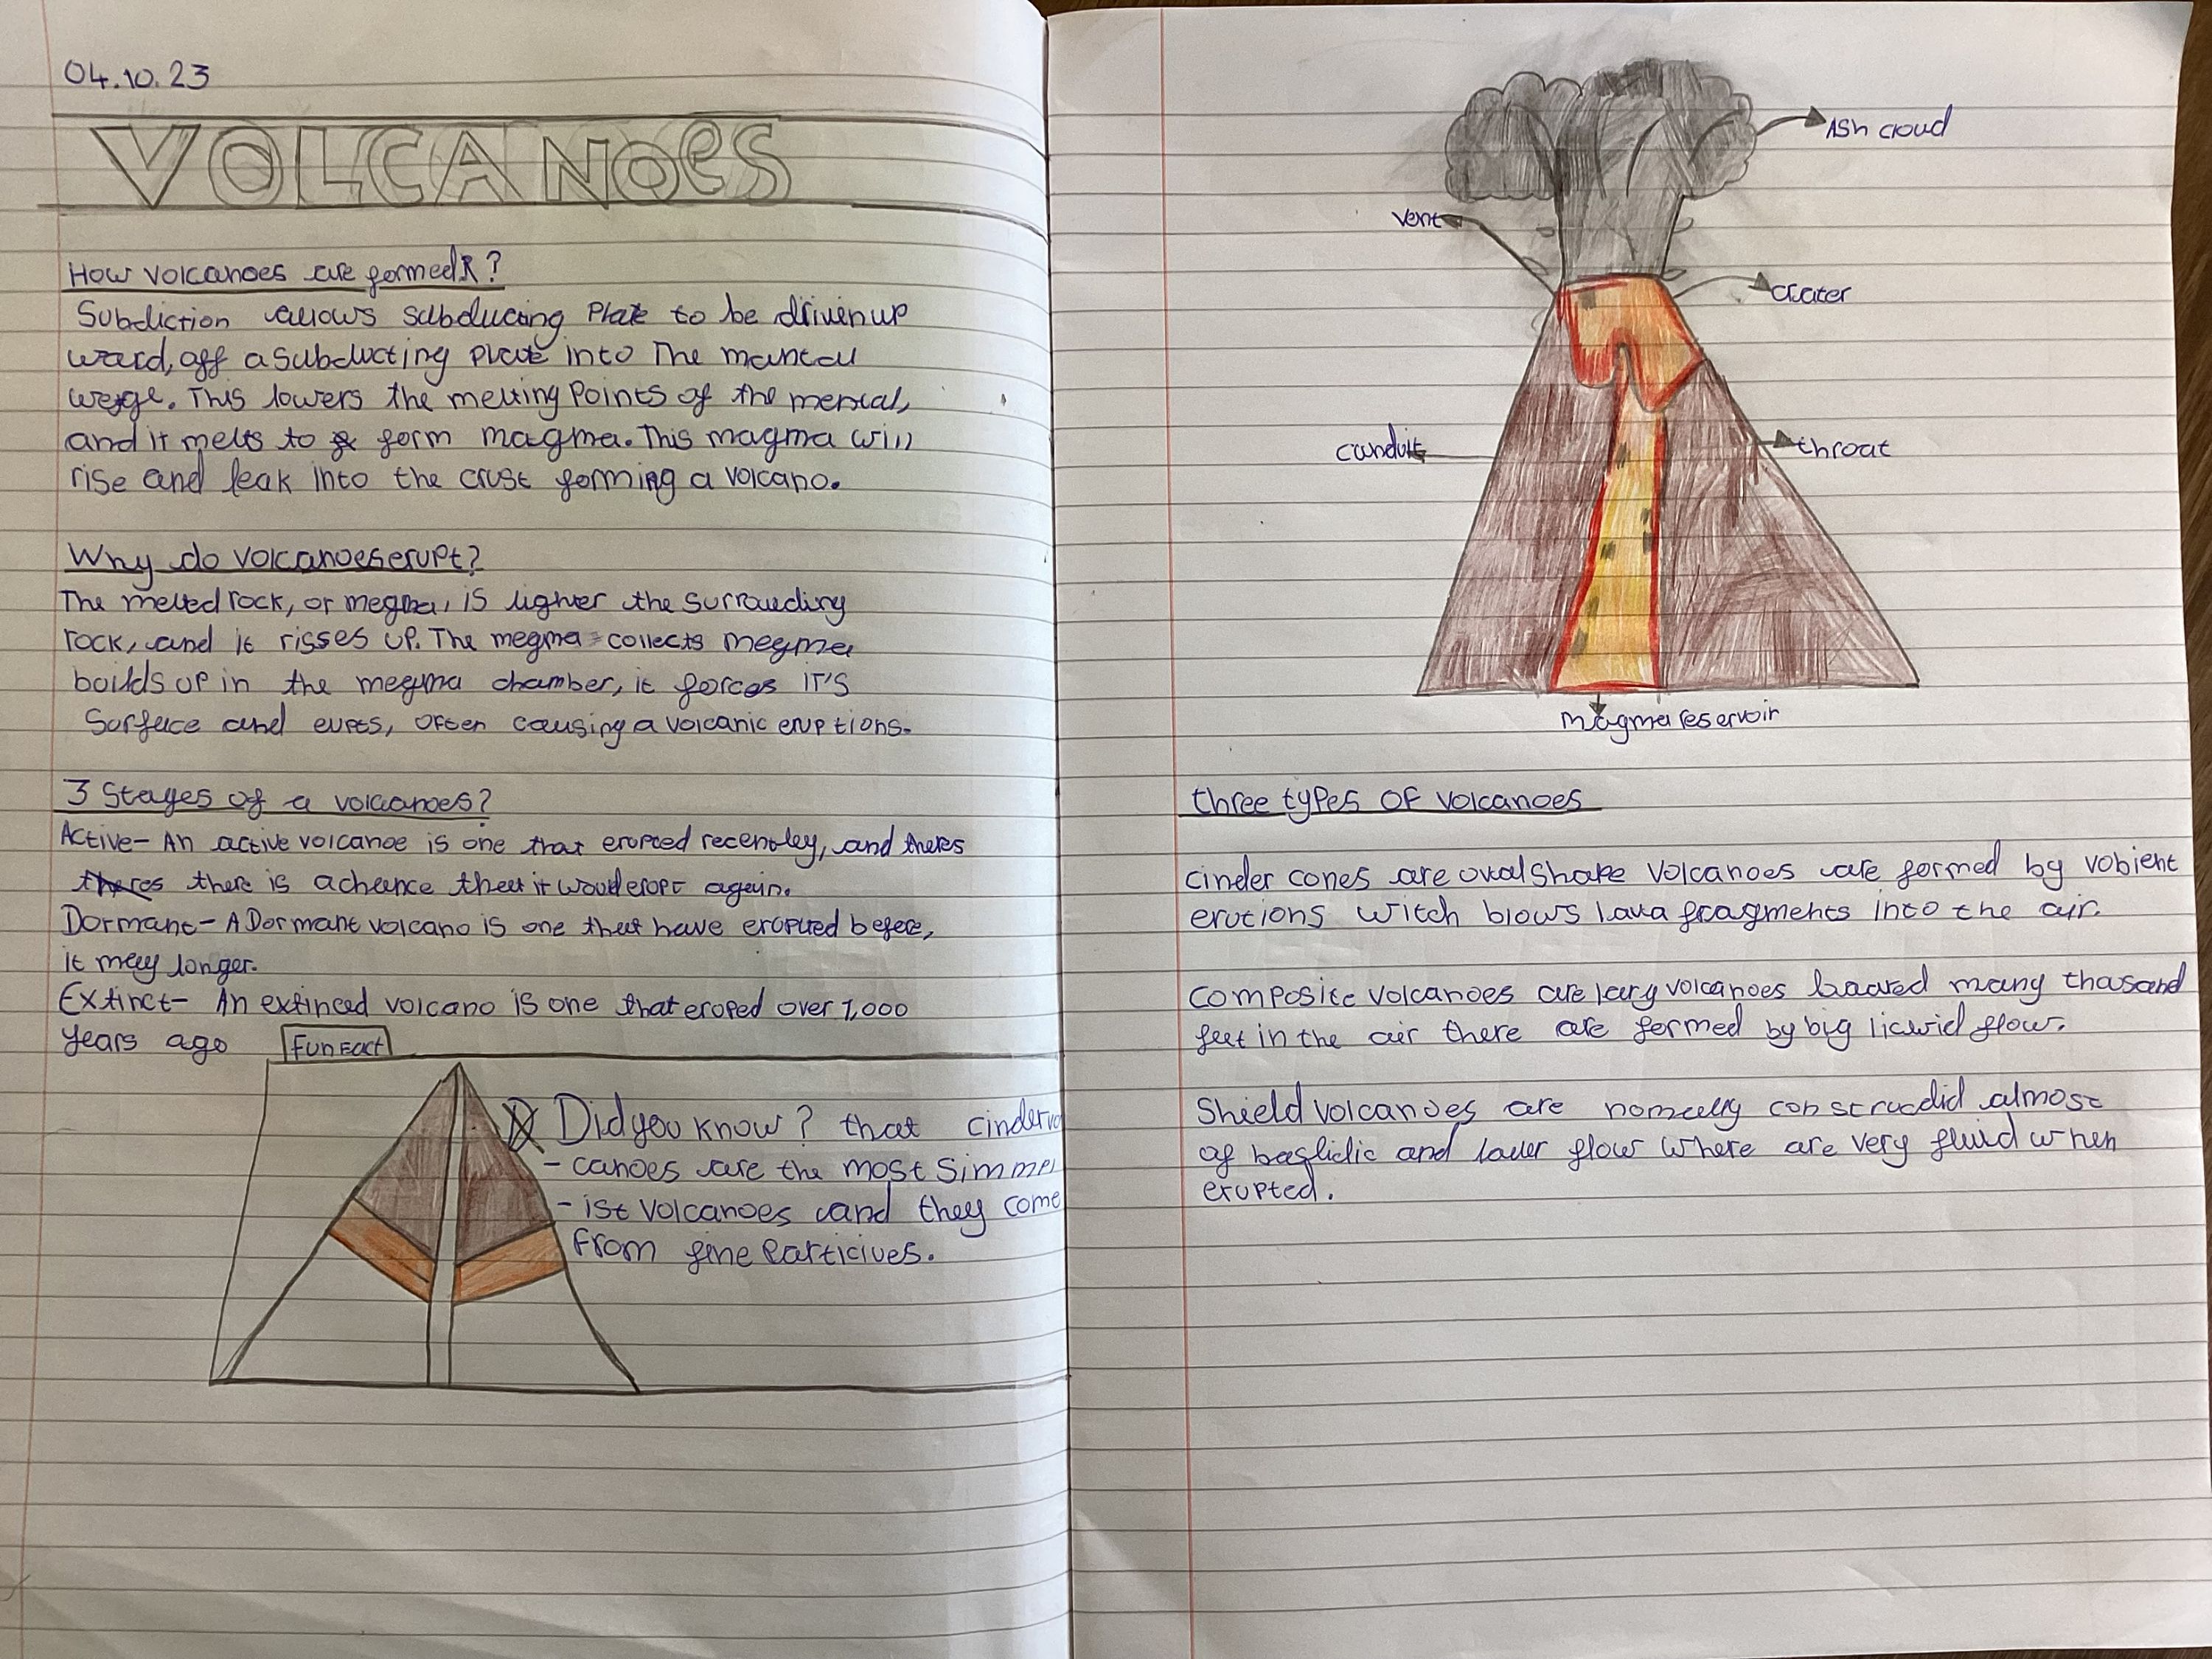 04.10.23
VOLCANOES
How volcanoes are formed?
Subdiction allows subducing Plate to be driven up
ward, off a subducting plate into The mantal
werge. This lowers the melting Points of the mental,
and it melts to form magma. This magma will
rise and leak into the crust forming a volcano.
Why do volcanoes erupt?
The melted rock, or megma, is lighter the surrouding
rock, and it risses up. The megma collects megma
boilds up in the megma chamber, it forces IT'S
Surface and eupts, often causing a volcanic eruptions.
3 Stages of a volcanoes?
Active- An active volcanoe is one that eropted recentley, and theres
theres there is a chance that it would eropt again.
Dormant- A Dormant volcano is one that have eropted before,
it may longer.
Extinct- An extinced volcano is one that eroped over 1,000
years ago
FUN FACT
Did you know? that cindervo
- canoes are the most Simmpl
- ist volcanoes and they come
from fine Particiues.
Ash cloud
vent
crater
conduit
throat
magma reservoir
three types OF volcanoes
cinder cones are oval Shape Volcanoes are formed by vobient
erutions witch blows lava fragments into the air.
composite volcanoes are lary volcanoes baared many thasand
feet in the air there are formed by big licwid flow.
Shield volcanoes are normally construcdid almost
of baslidic and laver flow where are very fluid when
erupted.